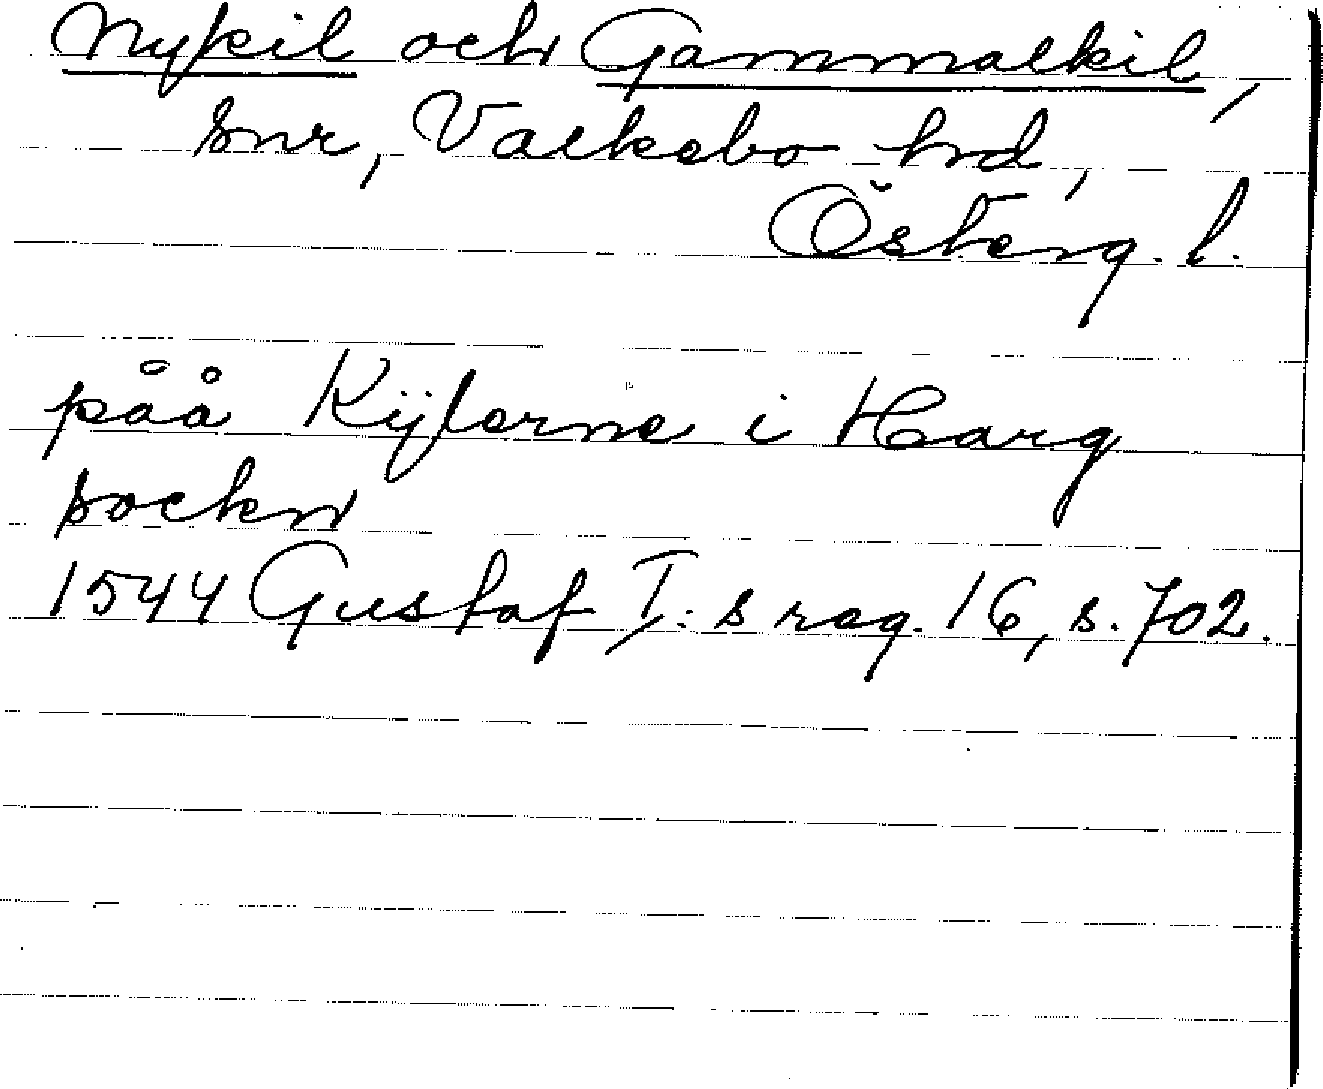 Nykil och Gammalkil,
snr, Valkebo hrd,
Österg. l.
påå Kÿlerne i Harg
sockn
1544 Gustaf I:s reg. 16, s. 702.